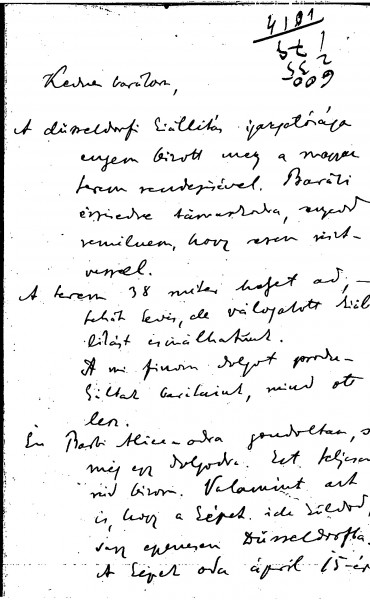 Kedves barátom,
A düsseldorfi kiállítás igazgatósága
engem bízott meg a magyar
terem rendezésével. Baráti
érzésedre támaszkodva,
remélnem, hogy ezen részt
veszel.
A terem 38 méter helyet ad, –
tehát kevés, de válogatott kiál
lítást csinálhatunk.
A mi finom dolgot produ-
káltak barátaink, mind ott
lesz.
Én Barti Alice-odra gondoltam, s
még egy dolgodra. Ezt teljesen
rád bízom. Valamint azt
is, hogy a képet ide küldöd,
vagy egyenesen Düsseldorfba.
A képek oda ápril 15-ér